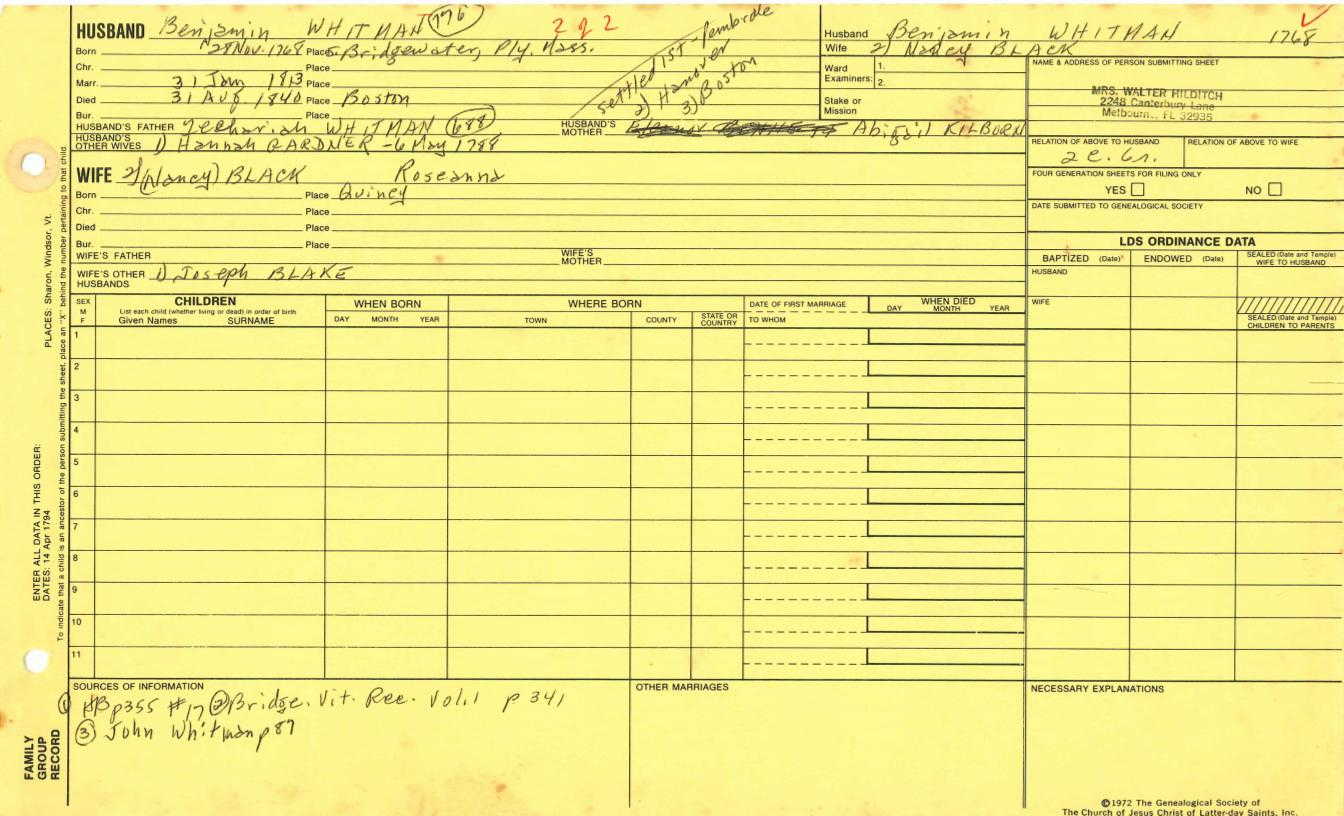 HUSBAND Benjamin WHITMAN 776 2 of 2
Born 28 Nov. 1768 Place Bridgewater, Ply. Mass.
Chr. Place
Marr. 31 Jan 1813 Place
Died 31 Aug. 1840 Place Boston
Bur. Place
settled 1st-Pembroke
2) Hanover
3) Boston
HUSBAND'S FATHER Zechariah WHITMAN 688 HUSBAND'S MOTHER Abigail KILBORN
HUSBAND'S OTHER WIVES 1) Hannah GARDNER - 6 May 1788
WIFE 2) (Nancy) BLACK Roseanna
Born Place Quincy
Chr. Place
Died Place
Bur. Place
WIFE'S FATHER WIFE'S MOTHER
WIFE'S OTHER HUSBANDS 1) Joseph BLAKE
Husband Benjamin WHITMAN 1768
Wife 2) Nancy BLACK
Ward Examiners: 1.
2.
Stake or Mission
NAME & ADDRESS OF PERSON SUBMITTING SHEET
MRS. WALTER HILDITCH
2248 Canterbury Lane
Melbourne, FL 32935
RELATION OF ABOVE TO HUSBAND RELATION OF ABOVE TO WIFE
FOUR GENERATION SHEETS FOR FILING ONLY
YES NO
DATE SUBMITTED TO GENEALOGICAL SOCIETY
LDS ORDINANCE DATA
BAPTIZED (Date) ENDOWED (Date) SEALED (Date and Temple) WIFE TO HUSBAND
HUSBAND
WIFE
SEALED (Date and Temple) CHILDREN TO PARENTS
SEX M F
CHILDREN
List each child (whether living or dead) in order of birth
Given Names SURNAME
WHEN BORN
DAY MONTH YEAR
WHERE BORN
TOWN COUNTY STATE OR COUNTRY
DATE OF FIRST MARRIAGE
TO WHOM
WHEN DIED
DAY MONTH YEAR
1
2
3
4
5
6
7
8
9
10
11
SOURCES OF INFORMATION
① p355 #17 ② Bridge. Vit. Rec. Vol.1 p 341
③ John Whitman p 87
OTHER MARRIAGES
NECESSARY EXPLANATIONS
©1972 The Genealogical Society of
The Church of Jesus Christ of Latter-day Saints, Inc.
PLACES: Sharon, Windsor, Vt.
ENTER ALL DATA IN THIS ORDER:
DATES: 14 Apr 1794
To indicate that a child is an ancestor of the person submitting the sheet, place an "X" behind the number pertaining to that child.
FAMILY
GROUP
RECORD